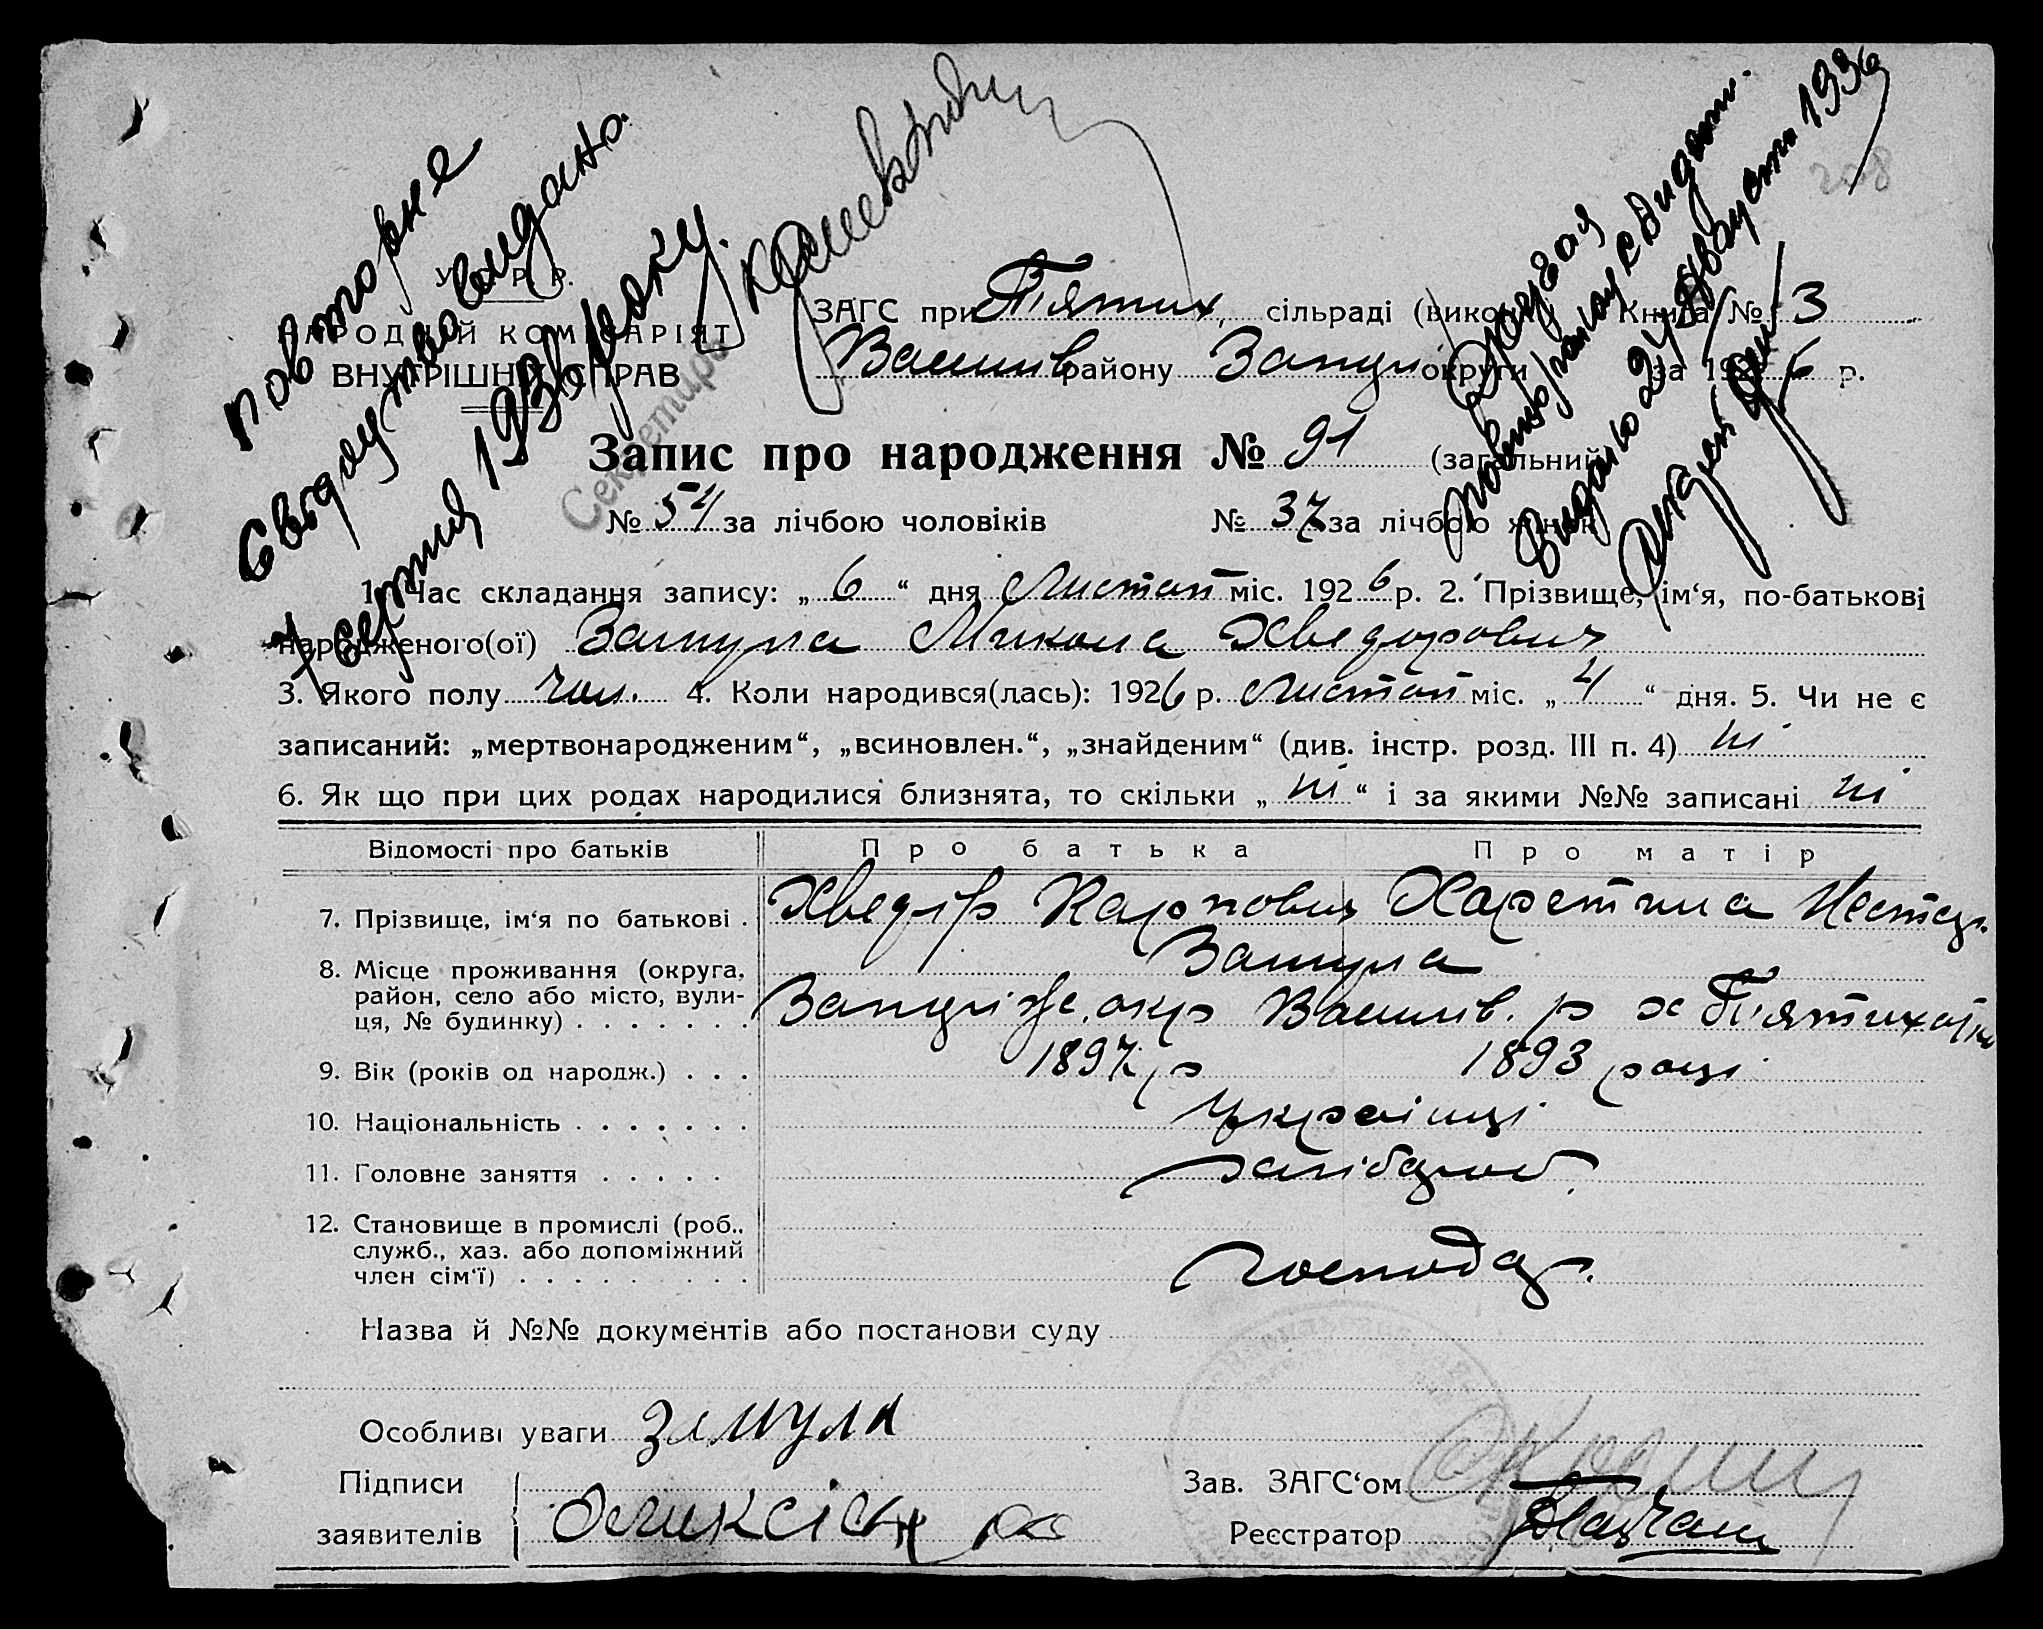 повторне
Свідоцтво видано.
7 серпня 1936 року.
Секретарь
208
У. С. Р. Р.
НАРОДНІЙ КОМІСАРІЯТ
ВНУТРІШНІХ СПРАВ
ЗАГС при П'ятих. сільраді (викон Книга № 3
Васиів району Запор округи за 1926 р.
Запис про народження № 91 (загальний
№ 54 за лічбою чоловіків № 37 за лічбою жінок
1. Час складання запису: „ 6 “ дня Листоп міс. 1926 р. 2. Прізвище, ім‘я, по-батькові
народженого(ої) Замула Микола Хведорович
3. Якого полу чол. 4. Коли народився(лась): 1926 р. Листоп міс. „ 4 “ дня. 5. Чи не є
записаний: „мертвонародженим“, „всиновлен.“, „знайденим“ (див. інстр. розд. III п. 4) ні
6. Як що при цих родах народилися близнята, то скільки „ ні “ і за якими №№ записані ні
Відомості про батьків Про батька Про матір
7. Прізвище, ім‘я по батькові . Хведір Карпович Харетина Нестер.
Замула
8. Місце проживання (округа,
район, село або місто, вули-
ця, № будинку) . . . . . . . Запоріж. окр Васиів. р х П'ятихатки
9. Вік (років од народж.) . . . 1897 р 1893 році
10. Національність . . . . . . . Українці
11. Головне заняття . . . . . хлібороб.
12. Становище в промислі (роб.,
служб., хаз. або допоміжний
член сім‘ї) . . . . . . . . . господар.
Назва й №№ документів або постанови суду
Особливі уваги Замула
Підписи
заявителів
Зав. ЗАГС‘ом
Реєстратор